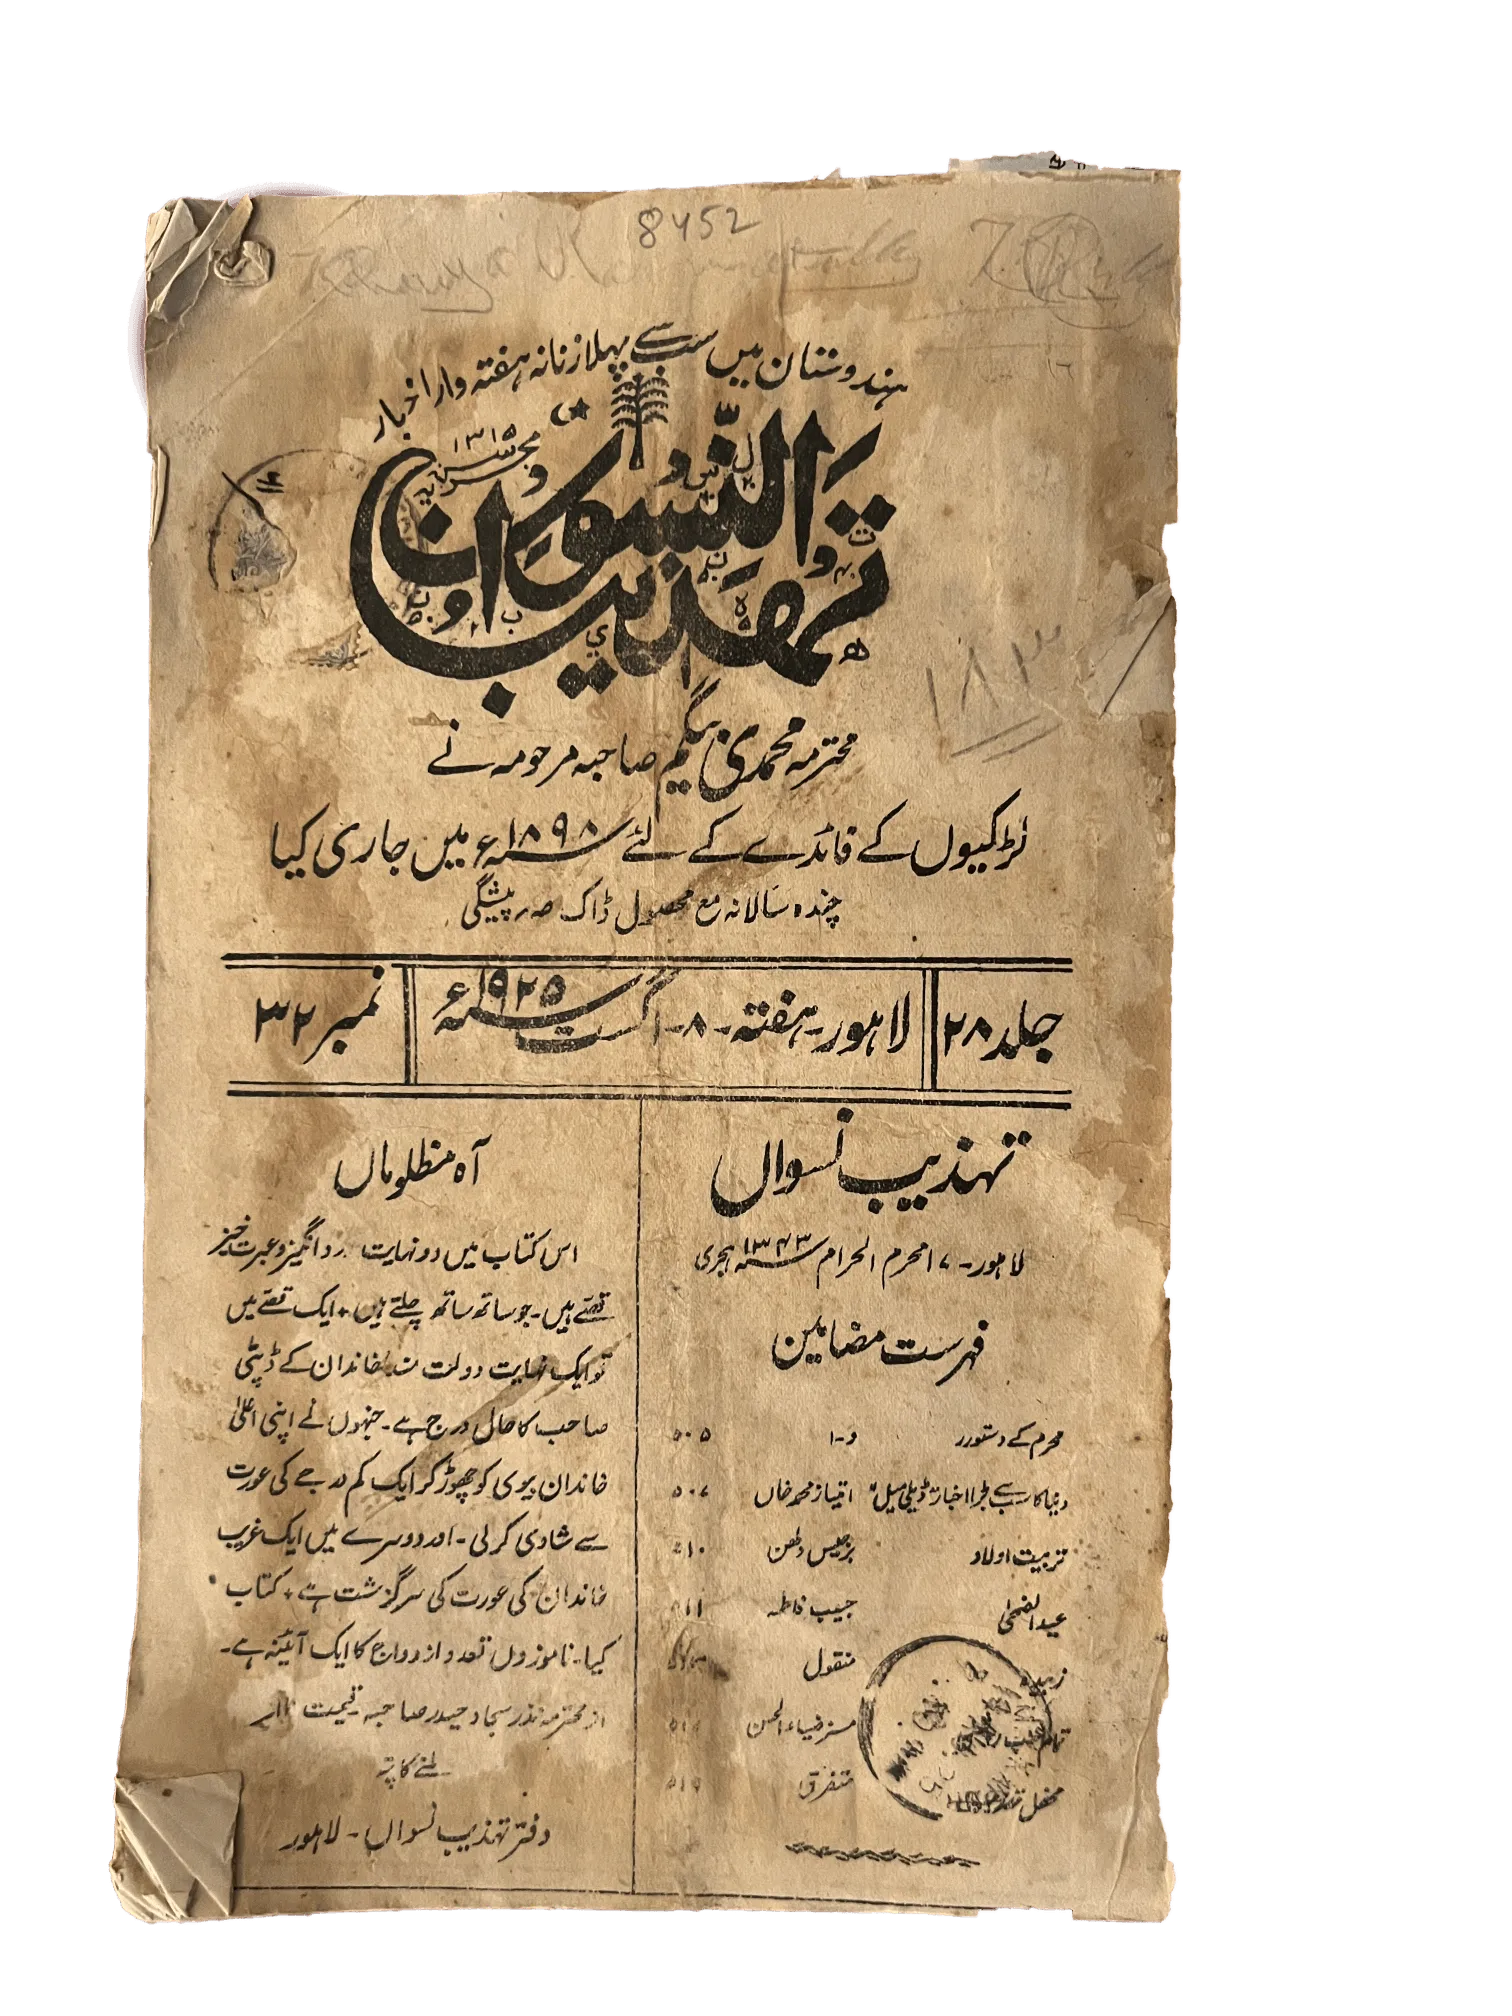 8452
ہندوستان میں سب سے پہلا زنانہ ہفتہ وار اخبار
مجریہ سنہ ۱۳۱۵
تہذیب النسوان
۱۸۳
محترمہ محمدی بیگم صاحبہ مرحومہ نے
لڑکیوں کے فائدے کے لئے سنہ ۱۸۹۸ء میں جاری کیا
چندہ سالانہ مع محصول ڈاک صہ پیشگی
جلد ۲۸
لاہور - ہفتہ - ۸ - اگست سنہ ۱۹۲۵ء
نمبر ۳۲
تہذیب نسواں
لاہور - ۱۷ محرم الحرام سنہ ۱۳۴۳ ہجری
فہرست مضامین
محرم کے دستور و - ا ۵۰۵
دنیا کا سب سے بڑا اخبار "ڈیلی میل" امتیاز محمد خاں ۵۰۷
تربیت اولاد برجیس دلھن ۵۱۰
عید الضحیٰ حبیب فاطمہ ۵۱۱
زبیدہ منقول
مسز ضیاء الحسن
محفل تہذیب متفرق
آہ مظلوماں
اس کتاب میں دو نہایت درد انگیز و عبرت خیز
قصّے ہیں - جو ساتھ ساتھ چلتے ہیں ۔ ایک قصّے میں
تو ایک نہایت دولت مند خاندان کے ڈپٹی
صاحب کا حال درج ہے - جنہوں نے اپنی اعلیٰ
خاندان بیوی کو چھوڑ کر ایک کم درجے کی عورت
سے شادی کر لی - اور دوسرے میں ایک غریب
خاندان کی عورت کی سرگزشت ہے ۔ کتاب
کیا - ناموزوں تعدد ازدواج کا ایک آئینہ ہے -
از محترمہ نذر سجاد حیدر صاحبہ قیمت
ملنے کا پتہ
دفتر تہذیب نسواں - لاہور